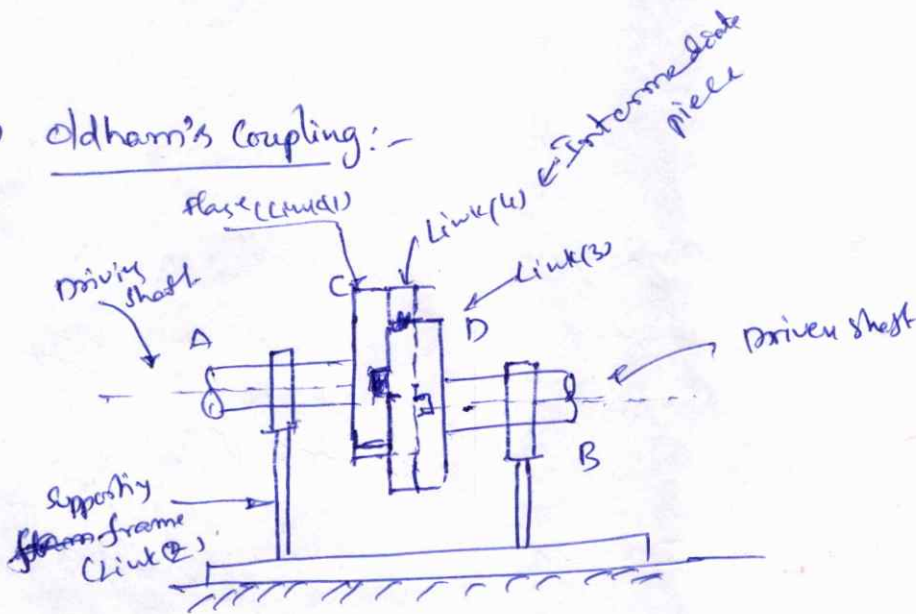 Oldham's Coupling:-
Intermediate
piece
Link(4)
(Link(1)
Link(3)
Driving
shaft
C
D
A
Driven shaft
B
Supporting
frame
(Link(2)